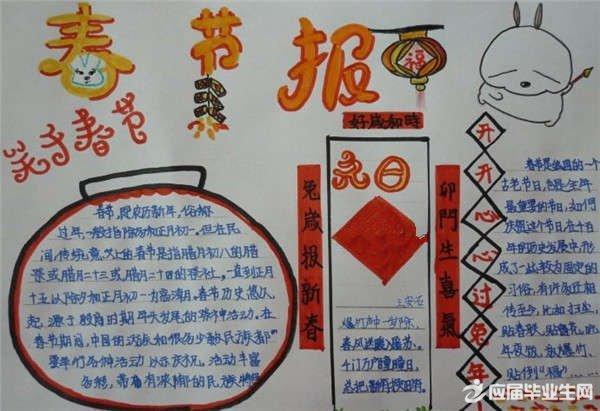 春节报
福
关于春节
春节,是农历新年,俗称
过年,一般指除夕和正月初一。但在民
间,传统意义上的春节是指腊月初八的腊
祭或腊月二十三或腊月二十四的祭灶,一直到正月
十五,以除夕和正月初一为高潮。春节历史悠久,
起源于殷商时期年头岁尾的祭神活动。在
春节期间,中国的汉族和很多少数民族都
要举行各种活动以示庆祝。活动丰富
多彩,带有浓郁的民族特
好歲和時
兔歲报新春
卯門生喜氣
元日
王安石
爆竹声中一岁除,
春风送暖入屠苏。
千门万户瞳瞳日,
总把新桃换旧符
开开心心过兔年
春节是我国的一个
古老节日,也是全年
最重要的节日,如何
庆祝这个节日,在千百
年的历史发展中,形
成了一些较为固定的
习俗,有许多还相
传至今,比如扫尘,
贴春联,贴窗花,吃
年夜饭,放爆竹,
贴倒“福”……
应届毕业生网